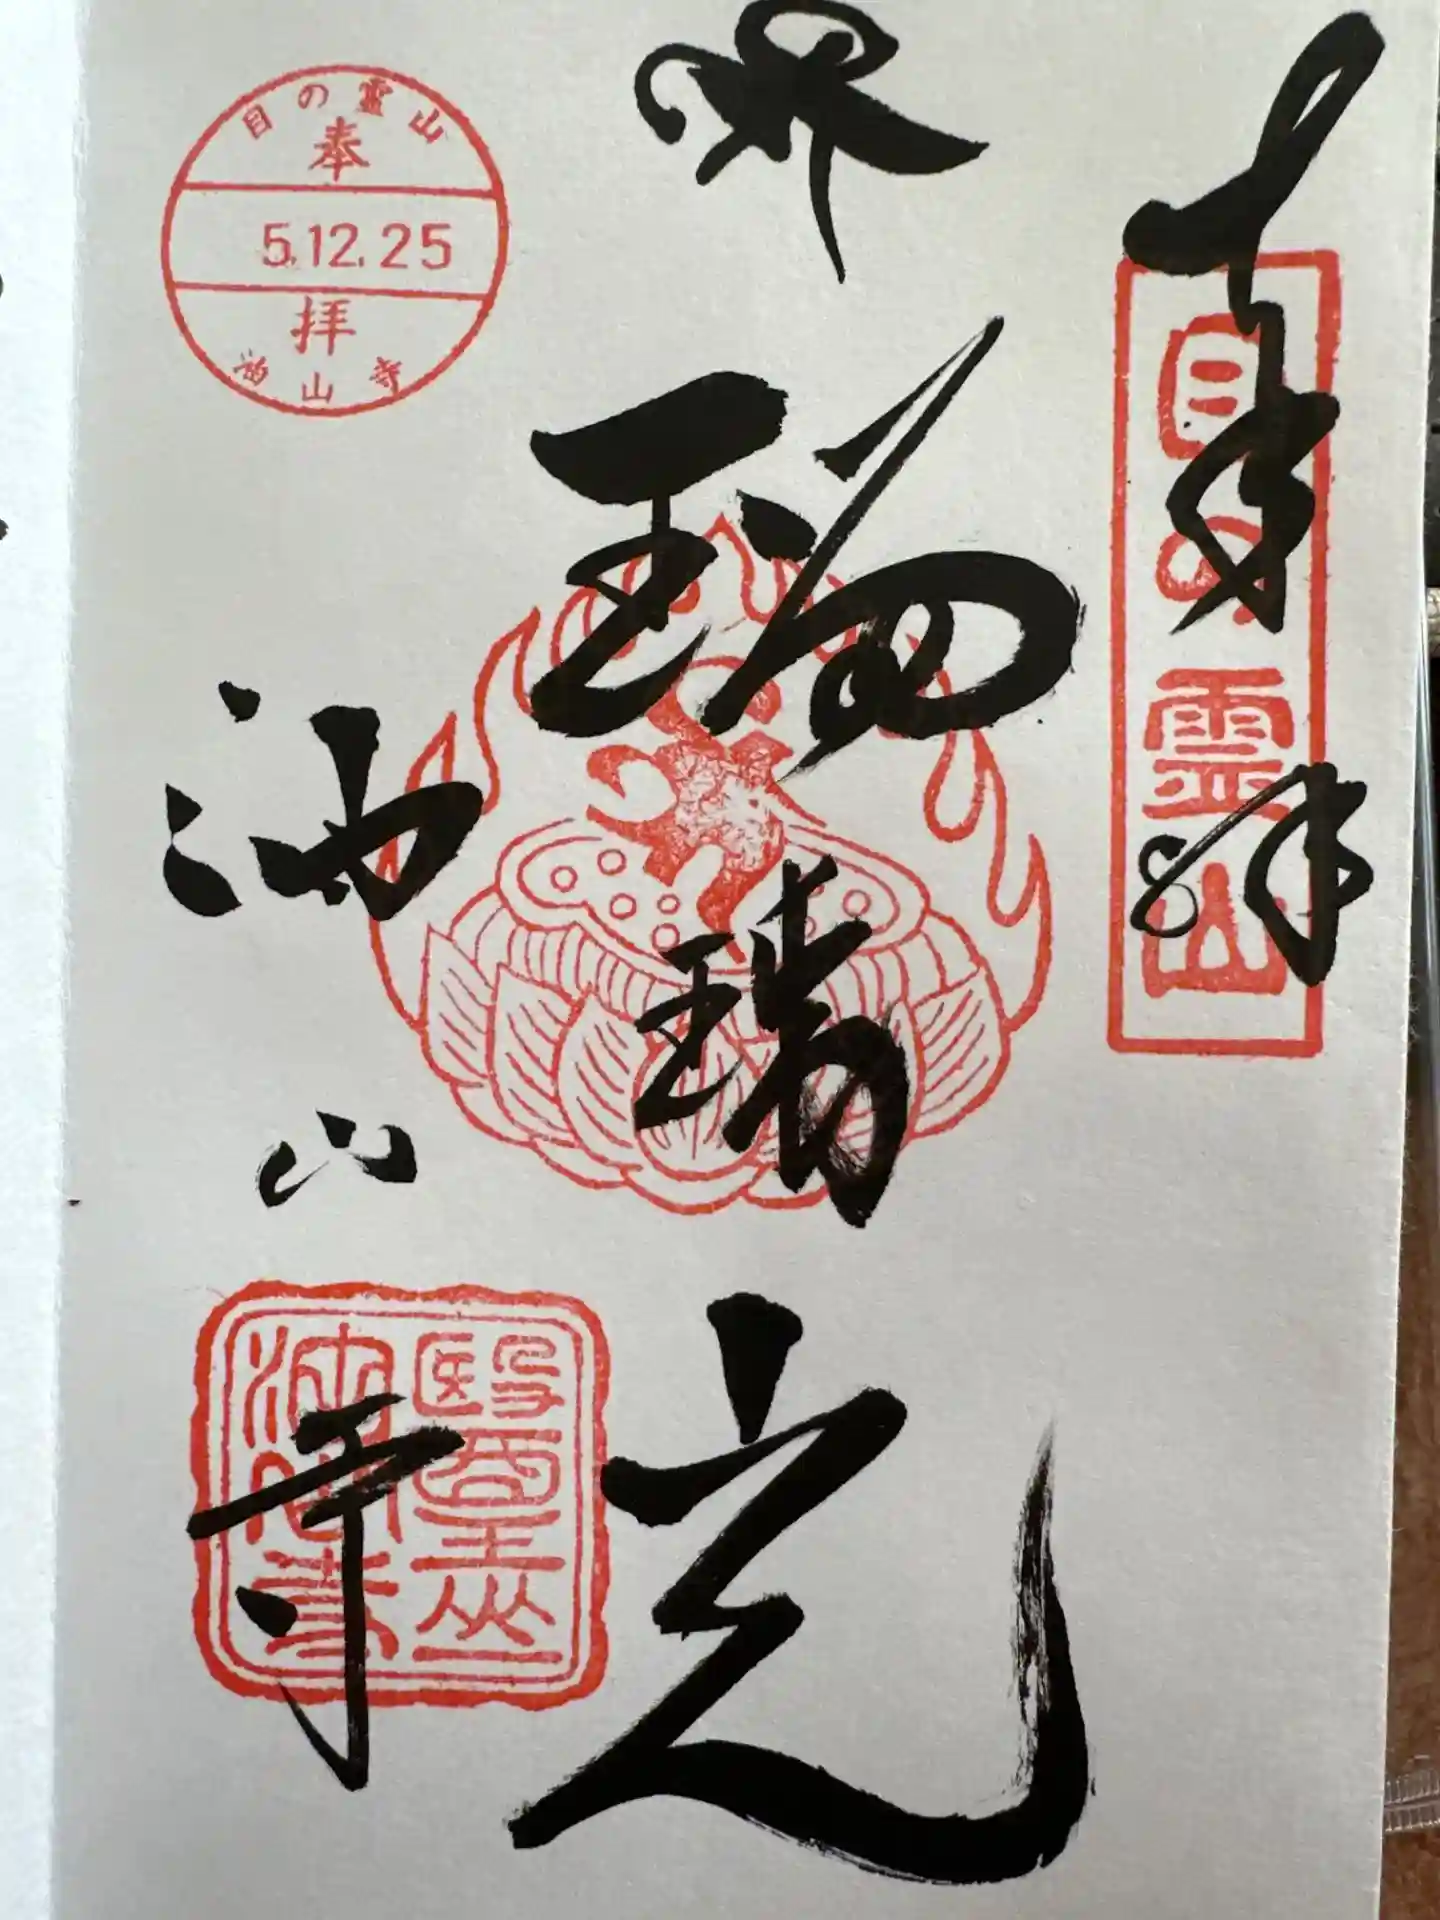 奉拝
目の霊山
瑠璃光
目の霊山
奉
5.12.25
拝
油山寺
油山寺
醫王山
油山寺